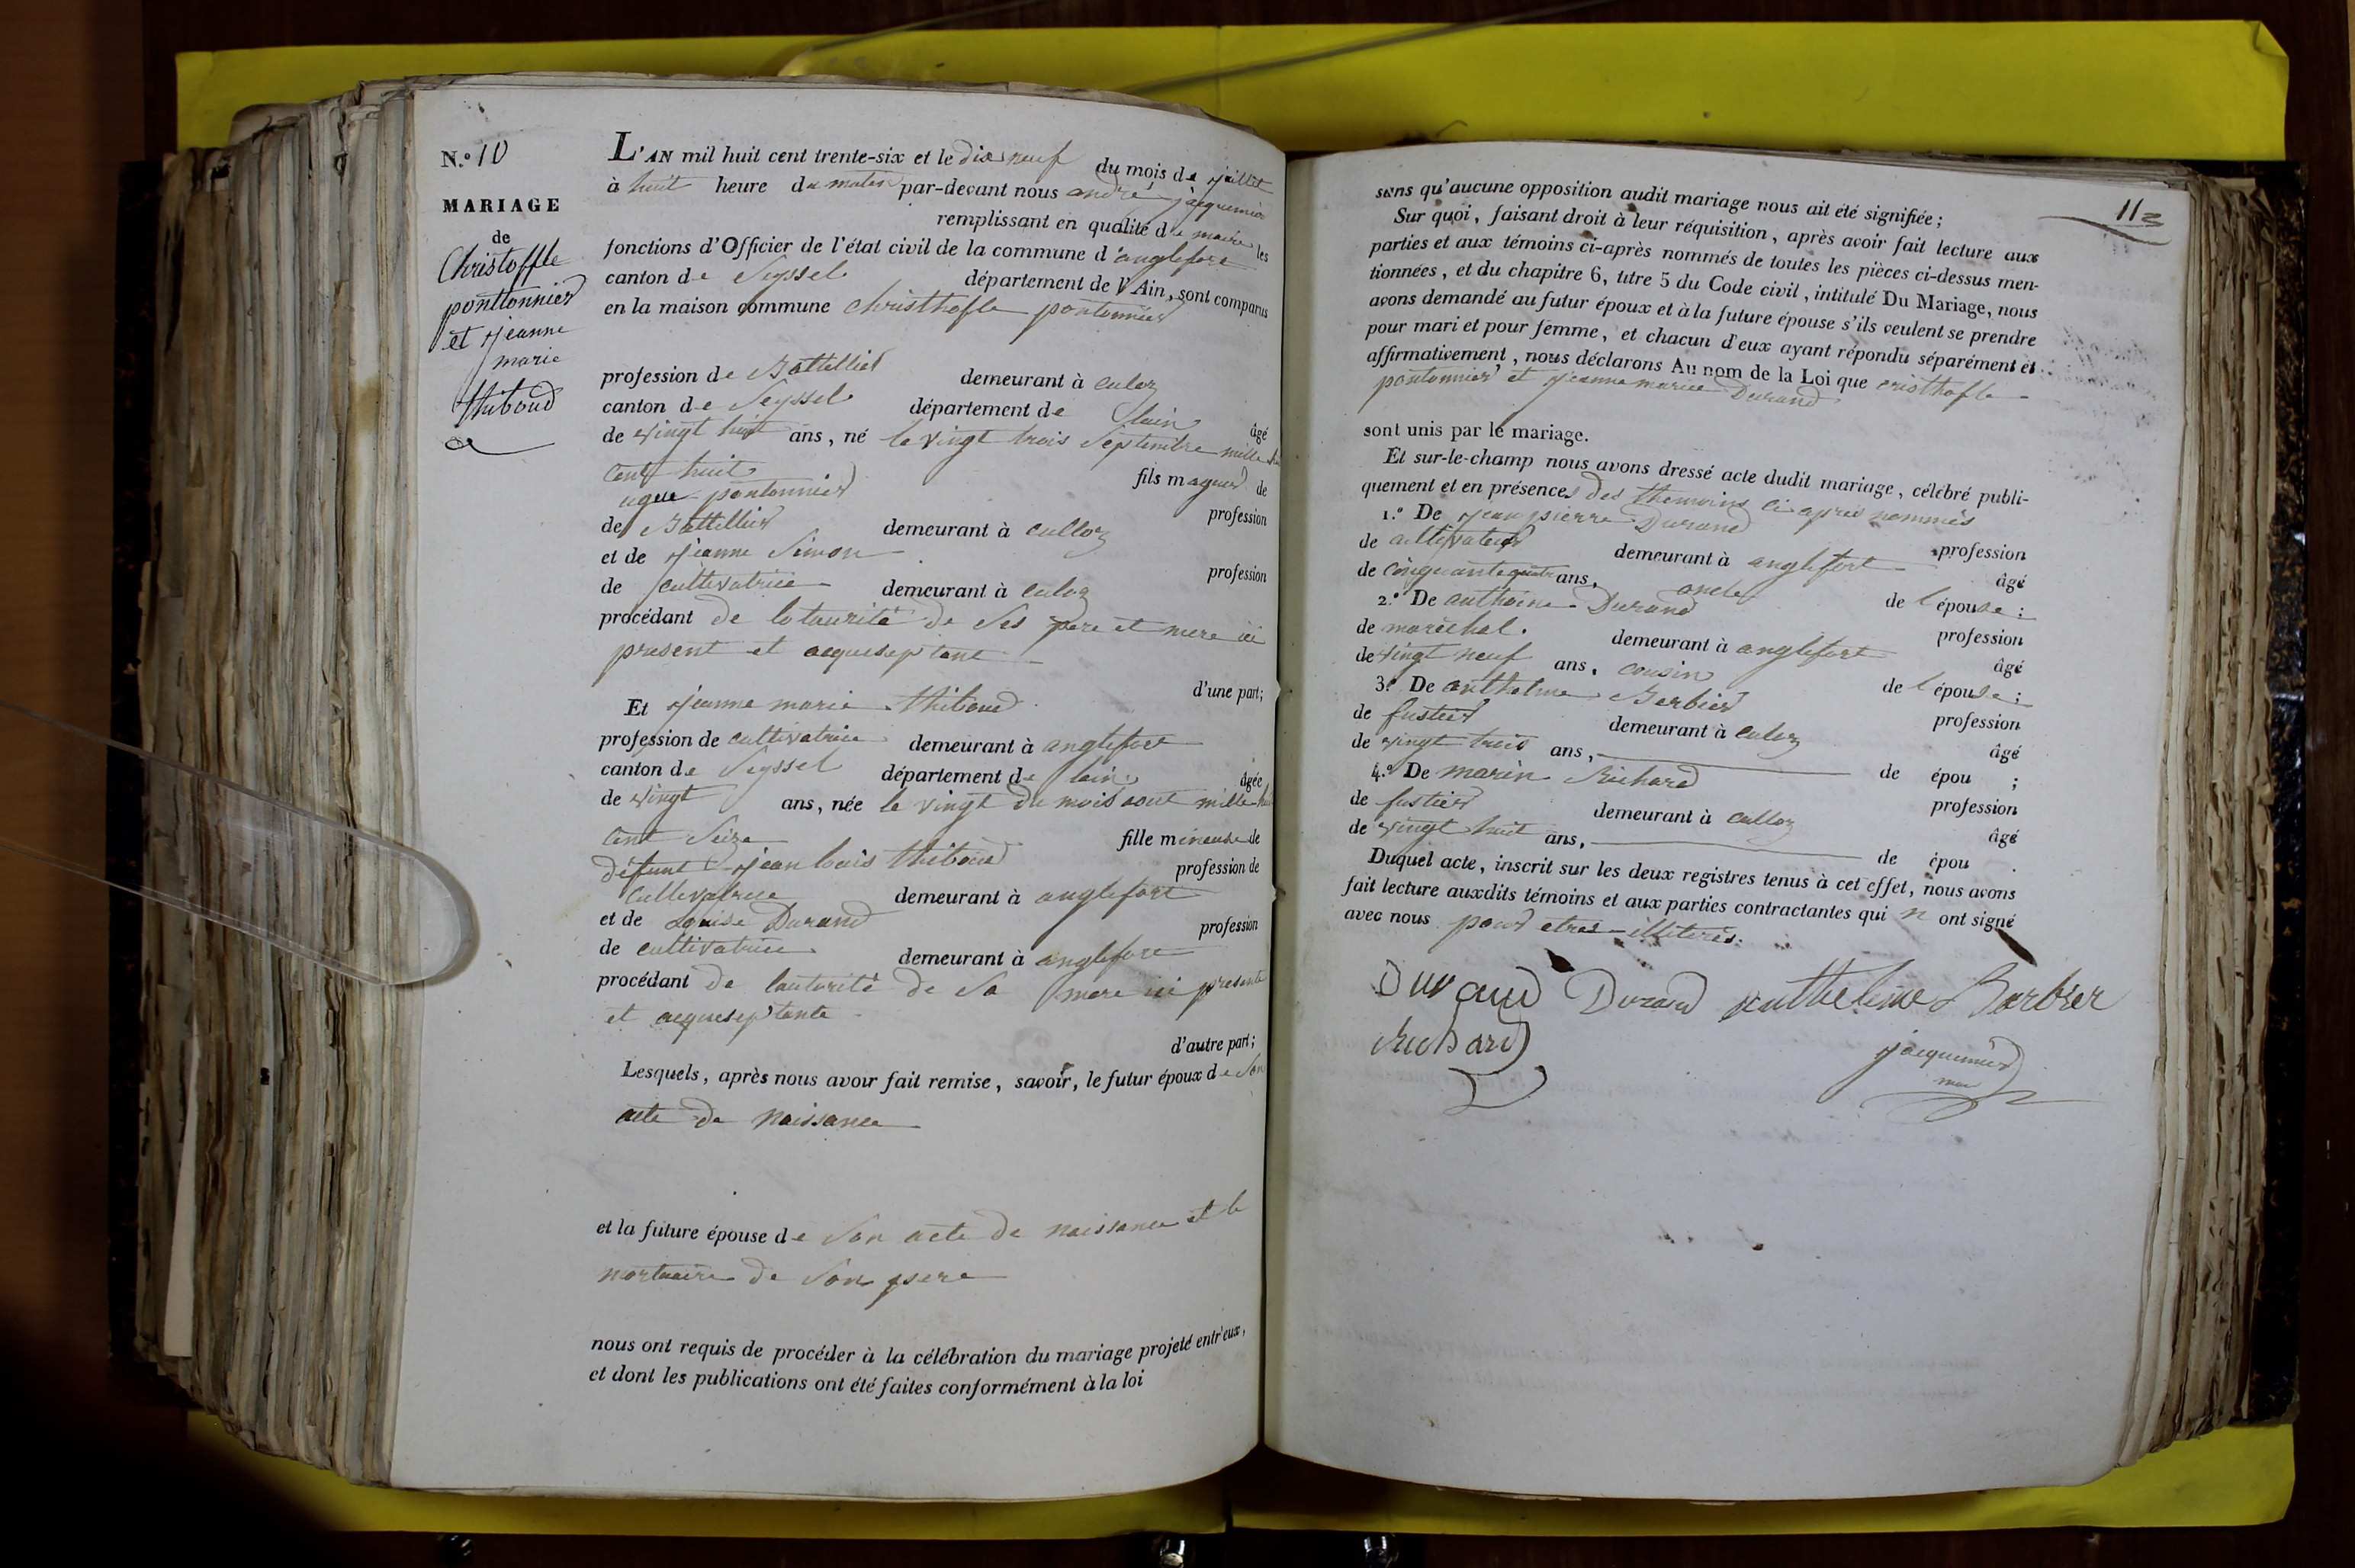 N.º 10
MARIAGE
de
Christoffle
ponttonnier
et jeanne
marie
thiboud
L'AN mil huit cent trente-six et le dix neuf du mois de juillet
à huit heure du matin par-devant nous andré jacquemier
remplissant en qualité de maire les
fonctions d'Officier de l'état civil de la commune d'anglefore
canton de Seyssel département de l'Ain, sont comparus
en la maison commune christhofle pontonnier
profession de Battellier demeurant à culoz
canton de Seyssel département de lain âgé
de vingt huit ans, né le vingt trois Septembre mille
cent huit fils mageur de
pontonnier profession
de Battellier demeurant à culloz
et de jeanne Simon profession
de cultivatrice demeurant à culoz
procédant de lotaurité de Ses pere et mere ici
present et acqueseptant
d'une part;
Et jeanne marie thiboud
profession de cultivatrice demeurant à anglefort
canton de Seyssel département de lain âgée
de vingt ans, née le vingt du mois aout mille
cent Seize fille mineuse de
défunt jean louis thiboud profession de
cullevatrice demeurant à anglefort
et de Louise Durand profession
de cultivatrice demeurant à anglefore
procédant de lauturité de Sa mere ici presente
et acqueseptante
d'autre part;
Lesquels, après nous avoir fait remise, savoir, le futur époux de Son
acte de naissance
et la future épouse de Son acte de naissance et le
mortuaire de Son pere
nous ont requis de procéder à la célébration du mariage projeté entr'eux,
et dont les publications ont été faites conformément à la loi
112
sans qu'aucune opposition audit mariage nous ait été signifiée;
Sur quoi, faisant droit à leur réquisition, après avoir fait lecture aux
parties et aux témoins ci-après nommés de toutes les pièces ci-dessus men-
tionnées, et du chapitre 6, titre 5 du Code civil, intitulé Du Mariage, nous
avons demandé au futur époux et à la future épouse s'ils veulent se prendre
pour mari et pour femme, et chacun d'eux ayant répondu séparément et
affirmativement, nous déclarons Au nom de la Loi que cristhofle
pontonnier et jeanne marie Durand
sont unis par le mariage.
Et sur-le-champ nous avons dressé acte dudit mariage, célébré publi-
quement et en présence des themoins ci apres nommés
1.º De jean pierre Durand profession
de cultivateur demeurant à anglefort âgé
de cinquante quatre ans, oncle de l'épouse;
2.º De anthoine Durand profession
de maréchal. demeurant à anglefort âgé
de vingt neuf ans, cousin de l'épouse;
3.º De anthelme Berbier profession
de fustier demeurant à culoz âgé
de vingt trois ans, de épou ;
4.º De marin Richard profession
de fustier demeurant à culloz âgé
de vingt huit ans, de épou .
Duquel acte, inscrit sur les deux registres tenus à cet effet, nous avons
fait lecture auxdits témoins et aux parties contractantes qui n ont signé
avec nous pour etres illiterés.
Durand Durand anthelme Barbier
Richard jacquemier